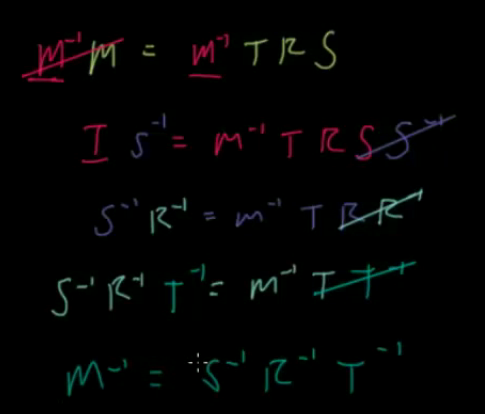 M⁻¹ M = M⁻¹ T R S
I S⁻¹ = M⁻¹ T R S S⁻¹
S⁻¹ R⁻¹ = M⁻¹ T R R⁻¹
S⁻¹ R⁻¹ T⁻¹ = M⁻¹ T T⁻¹
M⁻¹ = S⁻¹ R⁻¹ T⁻¹